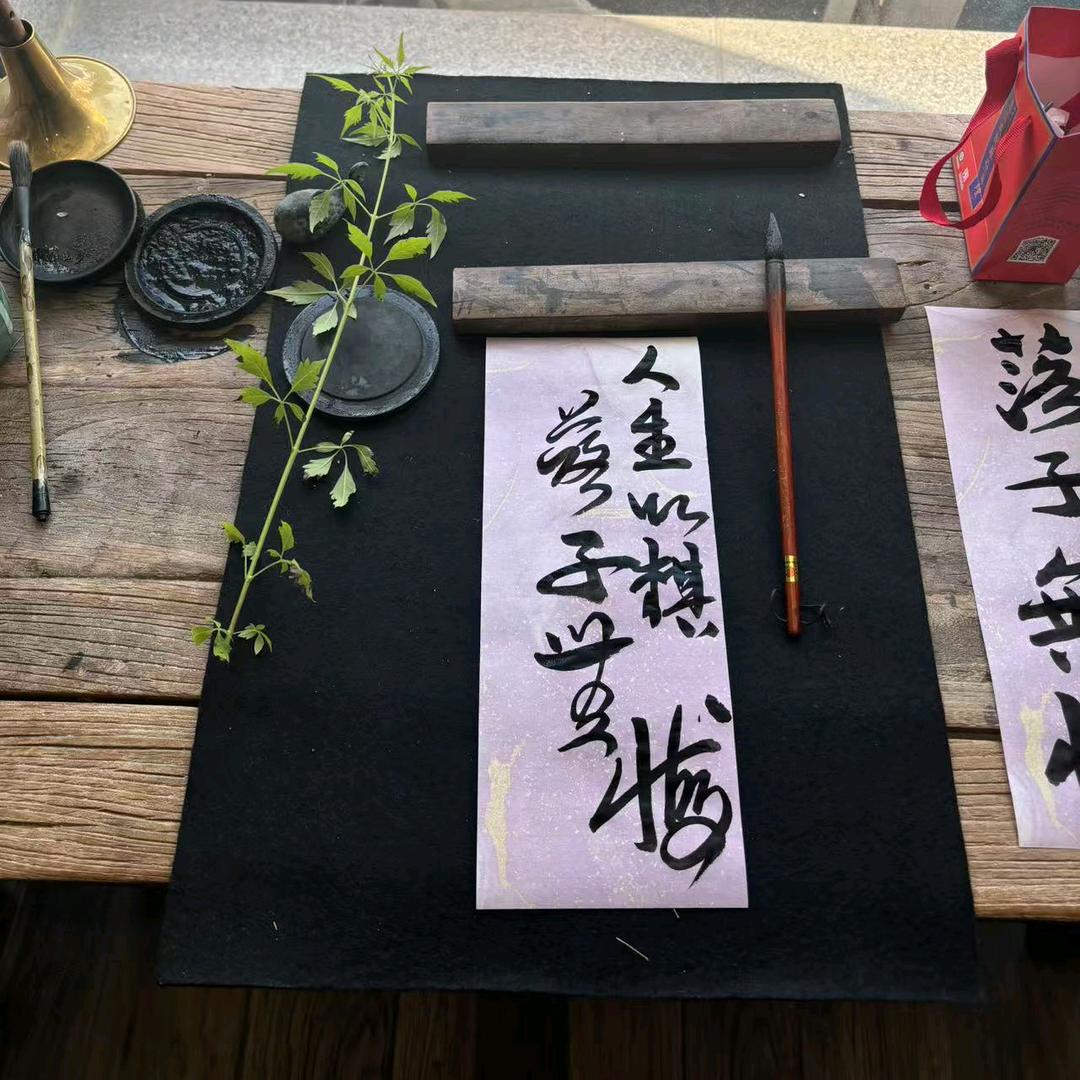 人生如棋
落子無悔
落子無